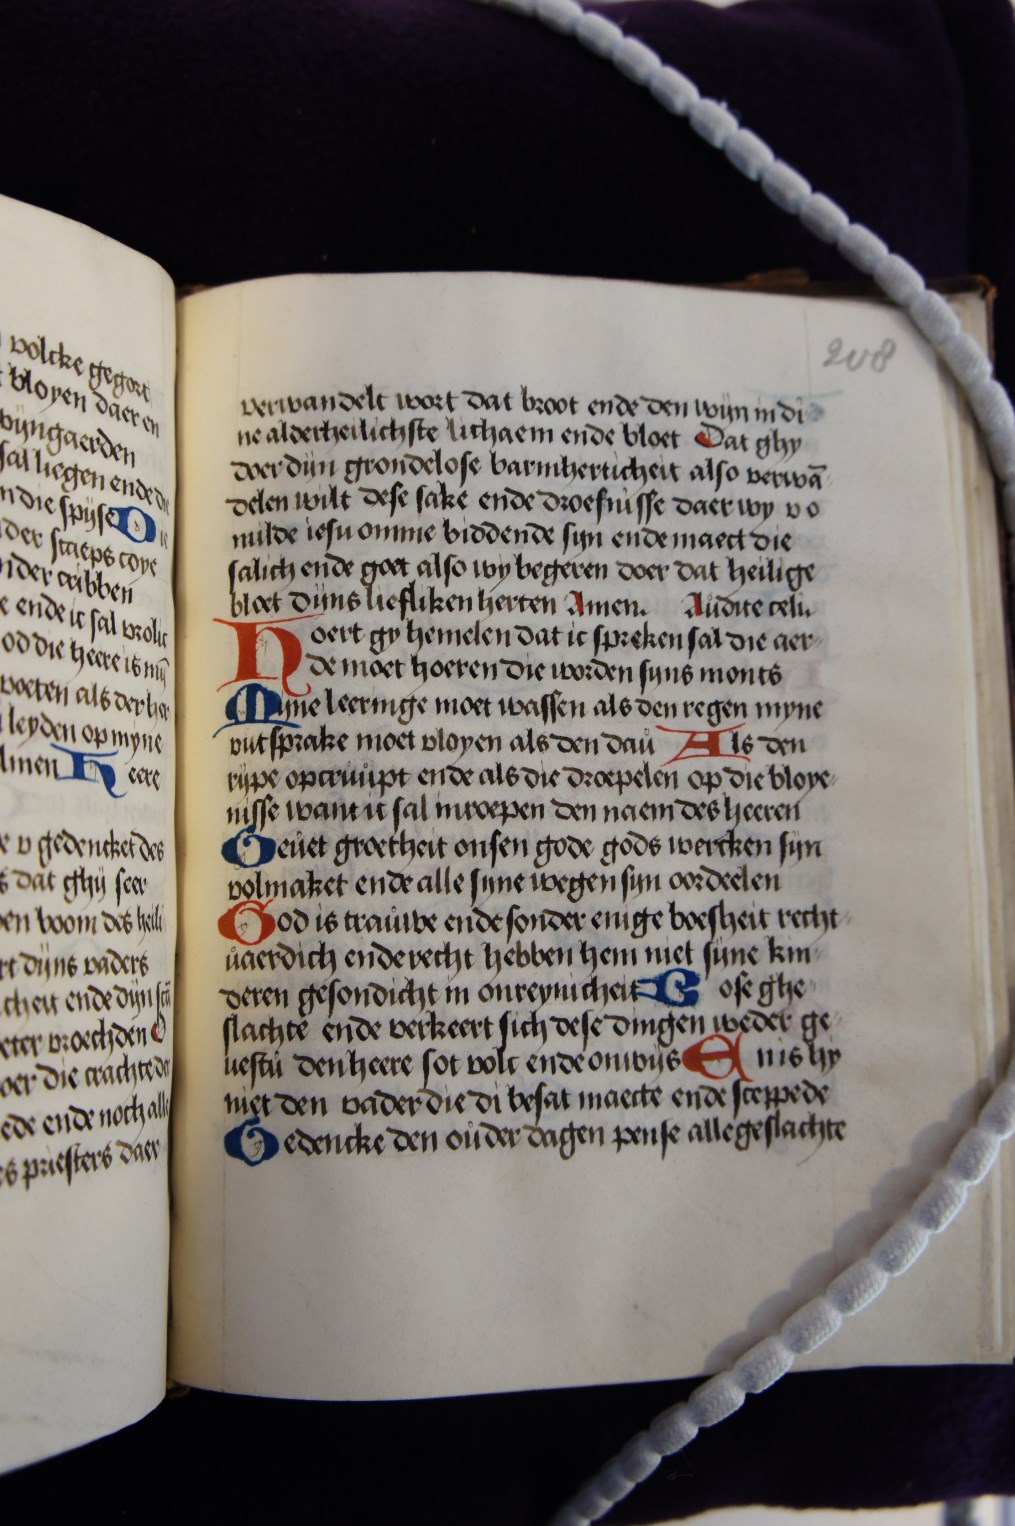 volcke gegort
bloyen daer en
wijngaerden
sal liegen ende die
die spijse Die
der scaeps coye
der cribben
ende ic sal vrolic
god die heere is mij
voeten als der her
leyden op myne
Amen Heere
v gedencket des
dat ghij seer
boom des heili
dijns vaders
cheit ende dijn
vroechden
oer die crachte der
ende noch alle
priesters daer
208
verwandelt wort dat broot ende den wijn in di
ne alderheilichste lichaem ende bloet Dat ghy
doer dijn grondelose barmherticheit also verwā
delen wilt dese sake ende droefnisse daer wy v o
milde iesu omme biddende syn ende maect die
salich ende goet also wy begeren doer dat heilige
bloet dijns liefliken herten Amen. Audite celi.
Hoert gy hemelen dat ic spreken sal die aer
de moet hoeren die worden syns monts
Myne leeringe moet wassen als den regen myne
vutsprake moet vloyen als den dau Als den
rijpe opcruupt ende als die droepelen op die bloye
nisse want ic sal inroepen den naem des heeren
Geuet groetheit onsen gode gods wercken syn
volmaket ende alle syne wegen syn oordeelen
God is trauwe ende sonder enige boesheit recht
uaerdich ende recht hebben hem niet sijne kin
deren gesondicht in onreynicheit Bose ghe
slachte ende verkeert sich dese dingen weder ge
uestu den heere sot volc ende onwijs En is hy
niet den vader die di besat maecte ende sceppede
Gedencke den ouder dagen pense alle geslachte